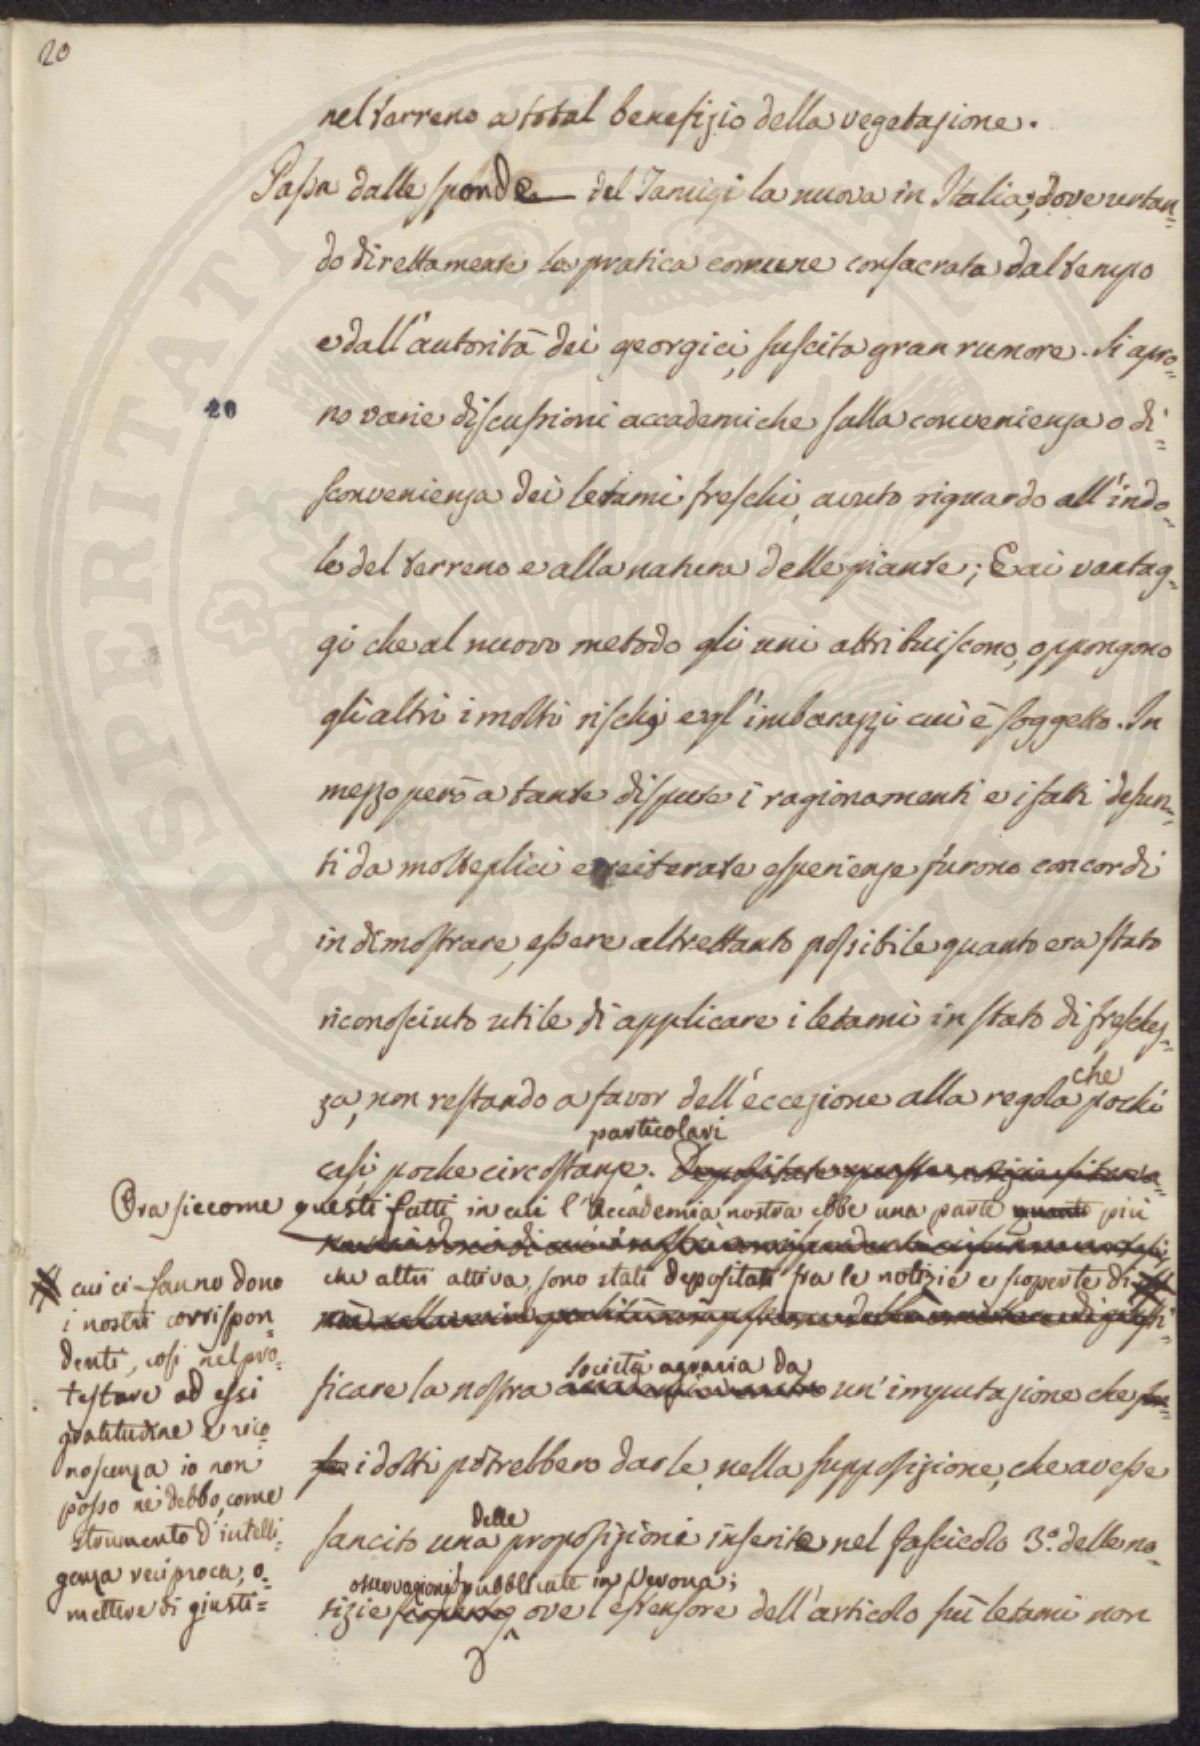 20
nel terreno a total benefizio della vegetazione.
Passa dalle sponde del Tamigi la nuova in Italia; dove urtan=
do direttamente la pratica comune consacrata dal tempo
e dall'autorità dei georgici, suscita gran rumore. Si apro=
20
no varie discussioni accademiche sulla convenienza o di=
sconvenienza dei letami freschi, avuto riguardo all'indo=
le del terreno e alla natura delle piante; E ai vantag=
gi che al nuovo metodo gli uni attribuiscono, oppongono
gli altri i molti rischj e gl'imbarazzi cui è soggetto. In
mezzo però a tante dispute i ragionamenti e i fatti desun=
ti da molteplici e reiterate esperienze furono concordi
in dimostrare, essere altrettanto possibile quanto era stato
riconosciuto utile di applicare i letami in stato di freschez=
za, non restando a favor dell'eccezione alla regola che pochi
casi, poche particolari circostanze.
Ora siccome questi fatti in cui l'Accademia nostra ebbe una parte quanto più
che altri attiva, sono stati depositati fra le notizie e scoperte di
cui ci fanno dono
i nostri corrispon=
denti, così nel pro=
testare ad essi
gratitudine e rico=
noscenza io non
posso né debbo, come
strumento d'intelli=
genza reciproca, o=
mettere di giusti=
ficare la nostra società agraria da un'imputazione che
i dotti potrebbero darle, nella supposizione, che avesse
sancito una delle proposizioni inserite nel fascicolo 3.° delle no=
tizie osservazioni pubblicate in Verona; ove l'estensore dell'articolo sui letami non